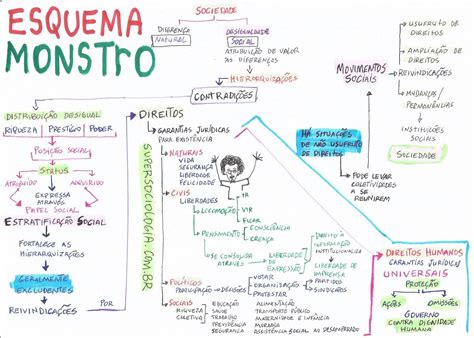 ESQUEMA
MONSTRO
SOCIEDADE
DIFERENÇA
NATURAL
DESIGUALDADE
SOCIAL
ATRIBUIÇÃO DE VALOR
ÀS DIFERENÇAS
HIERARQUIZAÇÕES
CONTRADIÇÕES
DISTRIBUIÇÃO DESIGUAL
RIQUEZA PRESTÍGIO PODER
POSIÇÃO SOCIAL
STATUS
ATRIBUÍDO ADQUIRIDO
EXPRESSA
ATRAVÉS
PAPEL SOCIAL
ESTRATIFICAÇÃO SOCIAL
FORTALECE AS
HIERARQUIZAÇÕES
GERALMENTE
EXCLUDENTES
REIVINDICAÇÕES
POR
SUPERSOCIOLOGIA.COM.BR
DIREITOS
GARANTIAS JURÍDICAS
PARA EXISTÊNCIA
NATURAIS
VIDA
SEGURANÇA
LIBERDADE
FELICIDADE
CIVIS
LIBERDADES
LOCOMOÇÃO
IR
VIR
FICAR
PENSAMENTO
CONSCIÊNCIA
CRENÇA
SE CONSOLIDA
ATRAVÉS
LIBERDADE
DE
EXPRESSÃO
DIREITO À
INFORMAÇÃO
INSTITUCIONALIZA
LIBERDADE DE
IMPRENSA
POLÍTICOS
PARTICIPAÇÃO
DECISÕES
ORGANIZAÇÃO
VOTAR
PROTESTAR
PARTIDOS
SINDICATOS
SOCIAIS
RIQUEZA
COLETIVA
EDUCAÇÃO
SAÚDE
TRABALHO
PREVIDÊNCIA
SEGURANÇA
ALIMENTAÇÃO
TRANSPORTE
MATERNIDADE E INFÂNCIA
MORADIA
ASSISTÊNCIA SOCIAL AO DESAMPARADO
HÁ SITUAÇÕES
DE NÃO USUFRUTO
DE DIREITOS
MOVIMENTOS
SOCIAIS
USUFRUTO DE
DIREITOS
AMPLIAÇÃO DE
DIREITOS
REIVINDICAÇÕES
MUDANÇAS/
PERMANÊNCIAS
INSTITUIÇÕES
SOCIAIS
SOCIEDADE
PODE LEVAR
COLETIVIDADES
A SE
REUNIREM
DIREITOS HUMANOS
GARANTIAS JURÍDICAS
UNIVERSAIS
PROTEÇÃO
AÇÕES OMISSÕES
GOVERNO
CONTRA DIGNIDADE
HUMANA